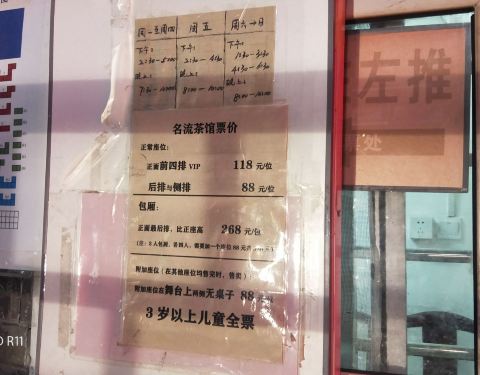 周一至周四 周五 周六→日
下午: 下午: 下午:
2:30-5:00 2:30-4:30 1:30-3:30
晚上: 晚上: 4:30-6:30
7:30-10:00 8:00-10:00 晚上:
8:00-10:00
名流茶馆票价
正常座位:
正面前四排 VIP 118 元/位
后排与侧排 88 元/位
包厢:
正面最后排,比正座高 268 元/包
附加座位(在其他座位均售完时,售卖):
附加座位在舞台上两侧无桌子 88 元/位
3岁以上儿童全票
左推
票处
R11